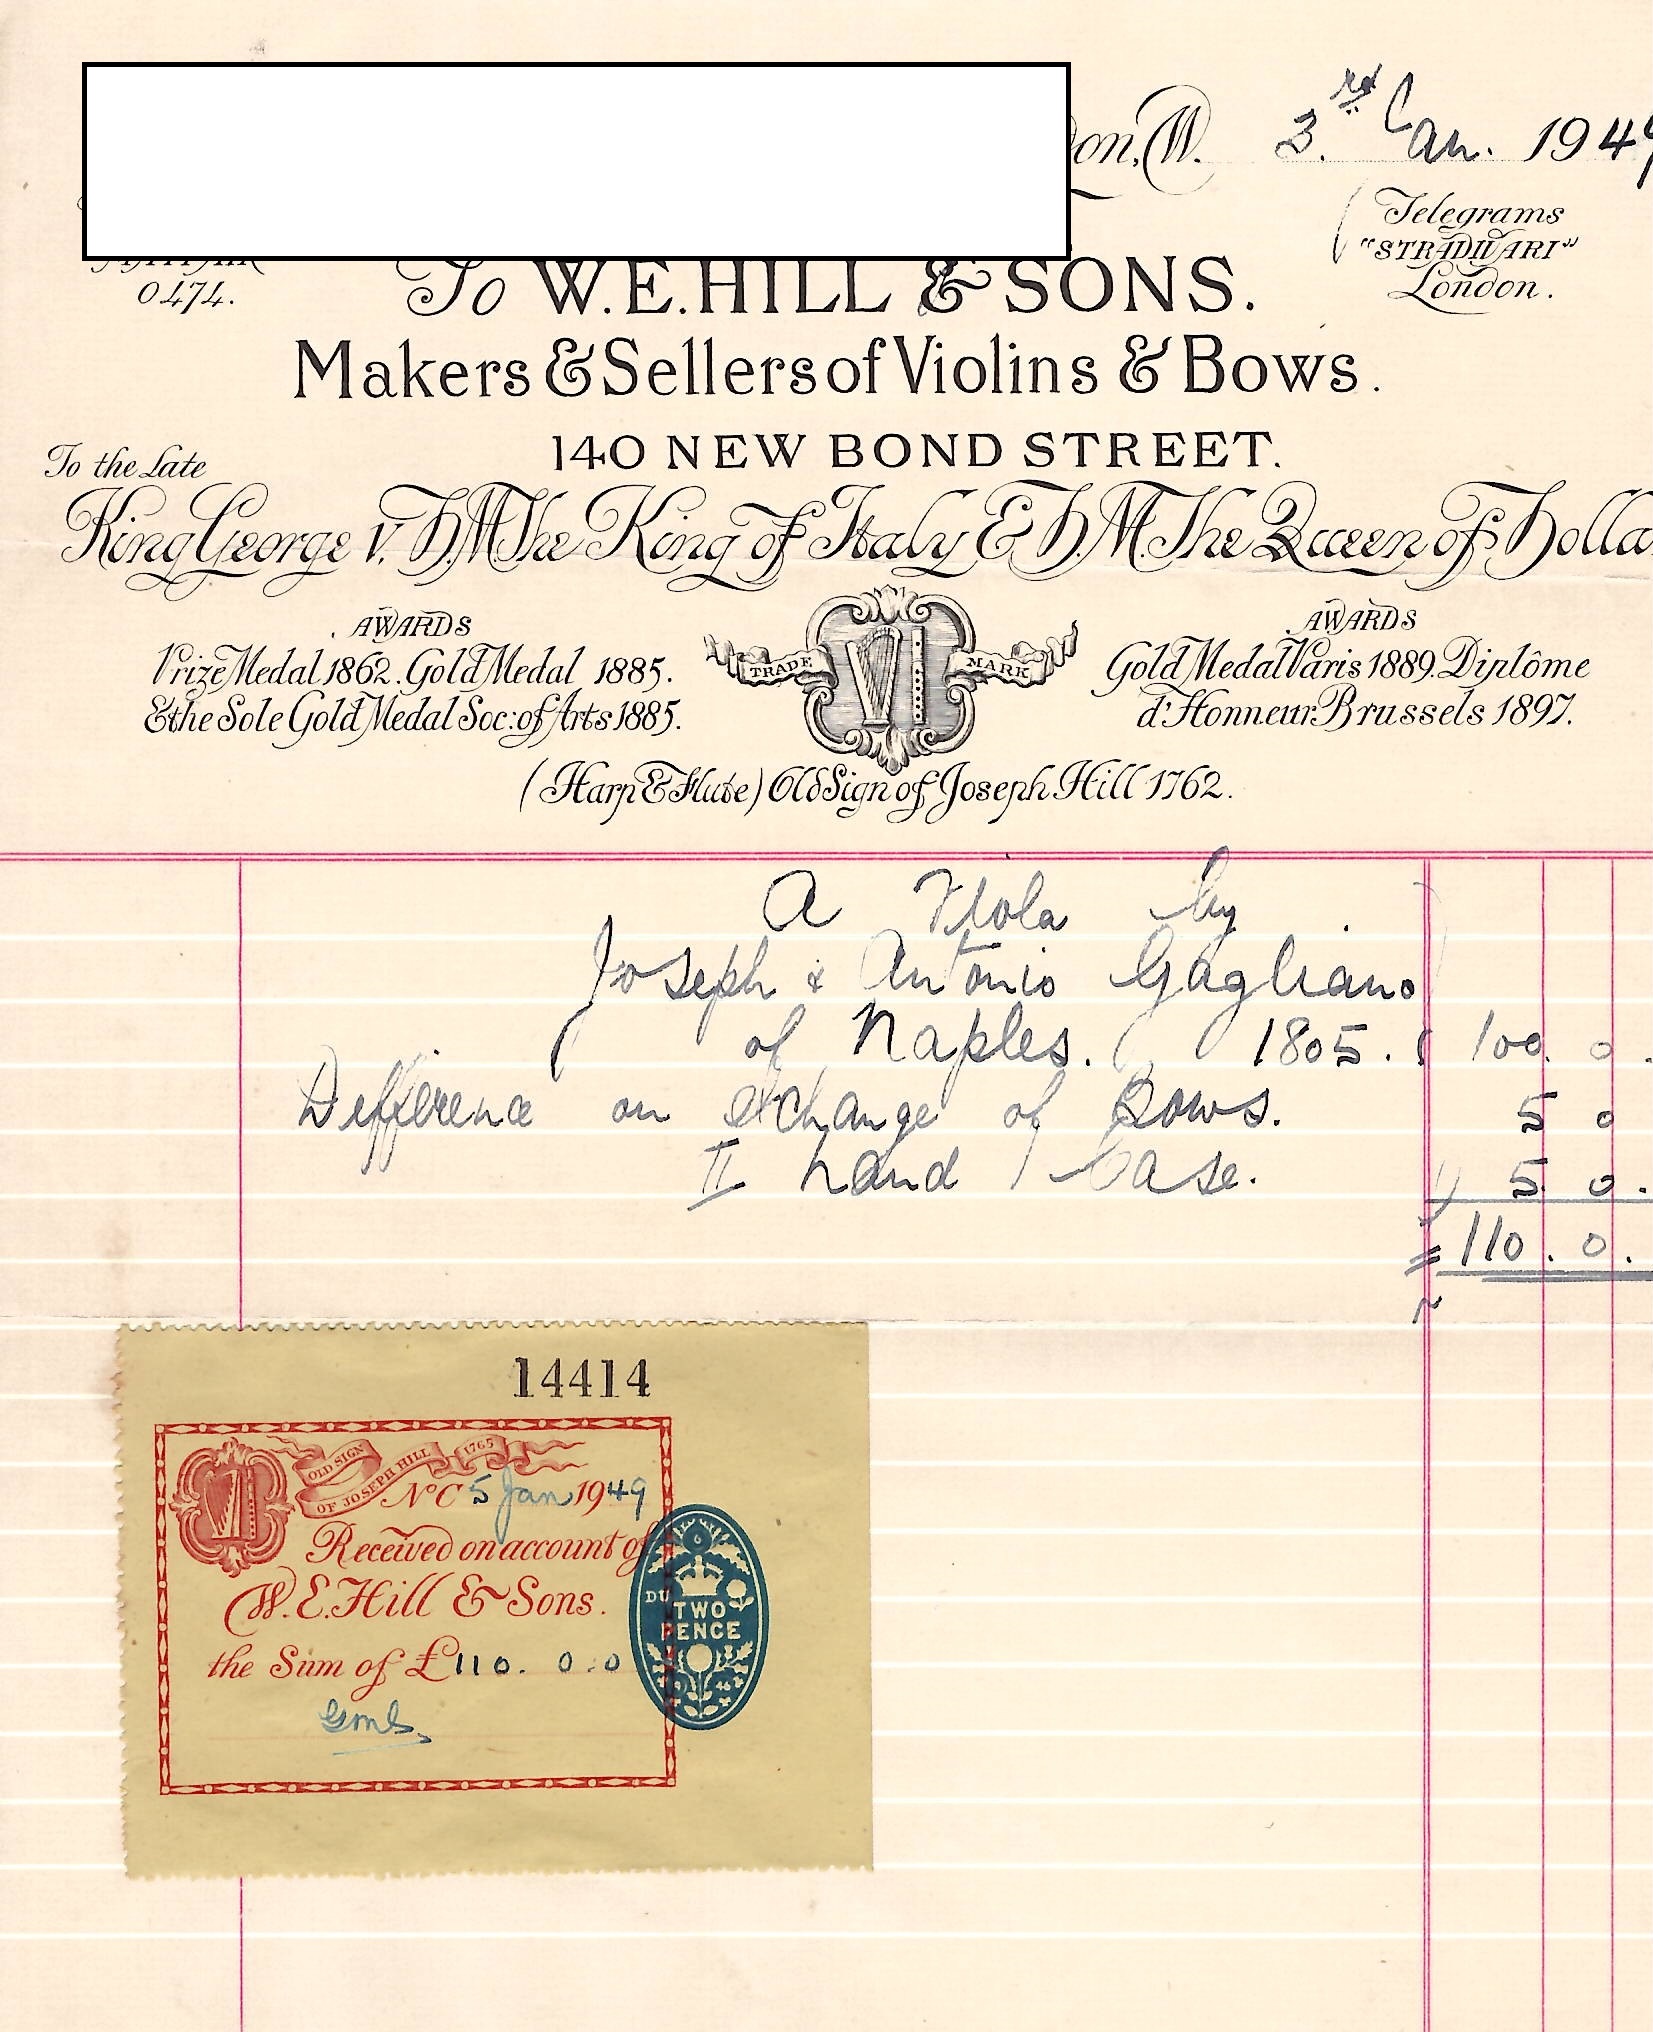 on, W. 3.rd Jan. 1949
Telegrams
"STRADIVARI"
London.
0474.
To W.E. HILL & SONS.
Makers & Sellers of Violins & Bows.
140 NEW BOND STREET.
To the Late
King George V. H.M. The King of Italy & H.M. The Queen of Holla
AWARDS
Prize Medal 1862. Gold Medal 1885.
& the Sole Gold Medal Soc: of Arts 1885.
TRADE MARK
AWARDS
Gold Medal Paris 1889. Diplôme
d'Honneur Brussels 1897.
(Harp & Flute) Old Sign of Joseph Hill 1762.
A Viola by
Joseph & Antonio Gagliano
of Naples. 1805. 100. 0.
Difference on exchange of Bows. 5 0
II hand Case. 5. 0.
110. 0.
14414
OLD SIGN
OF JOSEPH HILL 1765
No C 5 Jan 1949
Received on account of
W.E. Hill & Sons.
the Sum of £110. 0. 0
TWO
PENCE